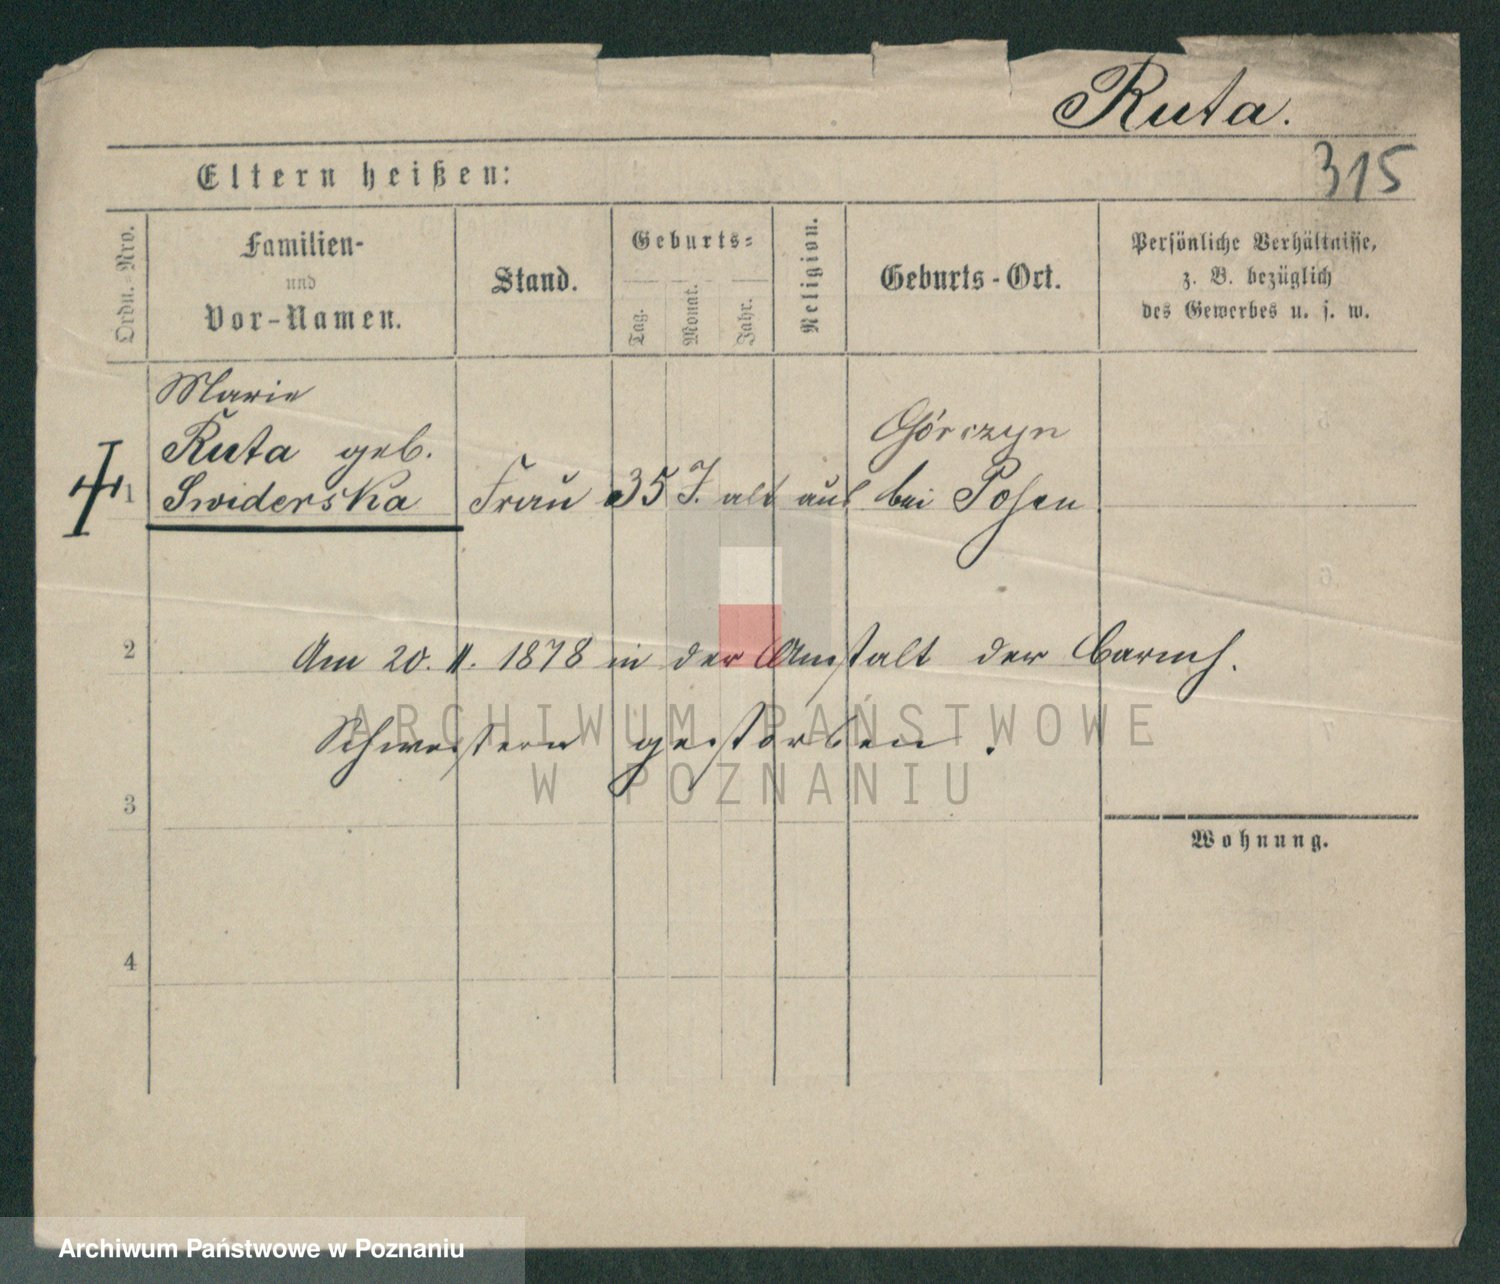 Ruta.
315
Eltern heißen:
Ordn.-Nro.
Familien-
und
Vor-Namen.
Stand.
Geburts-
Tag.
Monat.
Jahr.
Religion.
Geburts-Ort.
Persönliche Verhältnisse,
z. B. bezüglich
des Gewerbes u. s. w.
Marie
Ruta geb.
Górczyn
1 Swiderska Frau 35 J. alt aus bei Posen
2 Am 20. 11. 1878 in der Anstalt der barmh.
Schwestern gestorben.
ARCHIWUM PAŃSTWOWE
W POZNANIU
3
Wohnung.
4
Archiwum Państwowe w Poznaniu